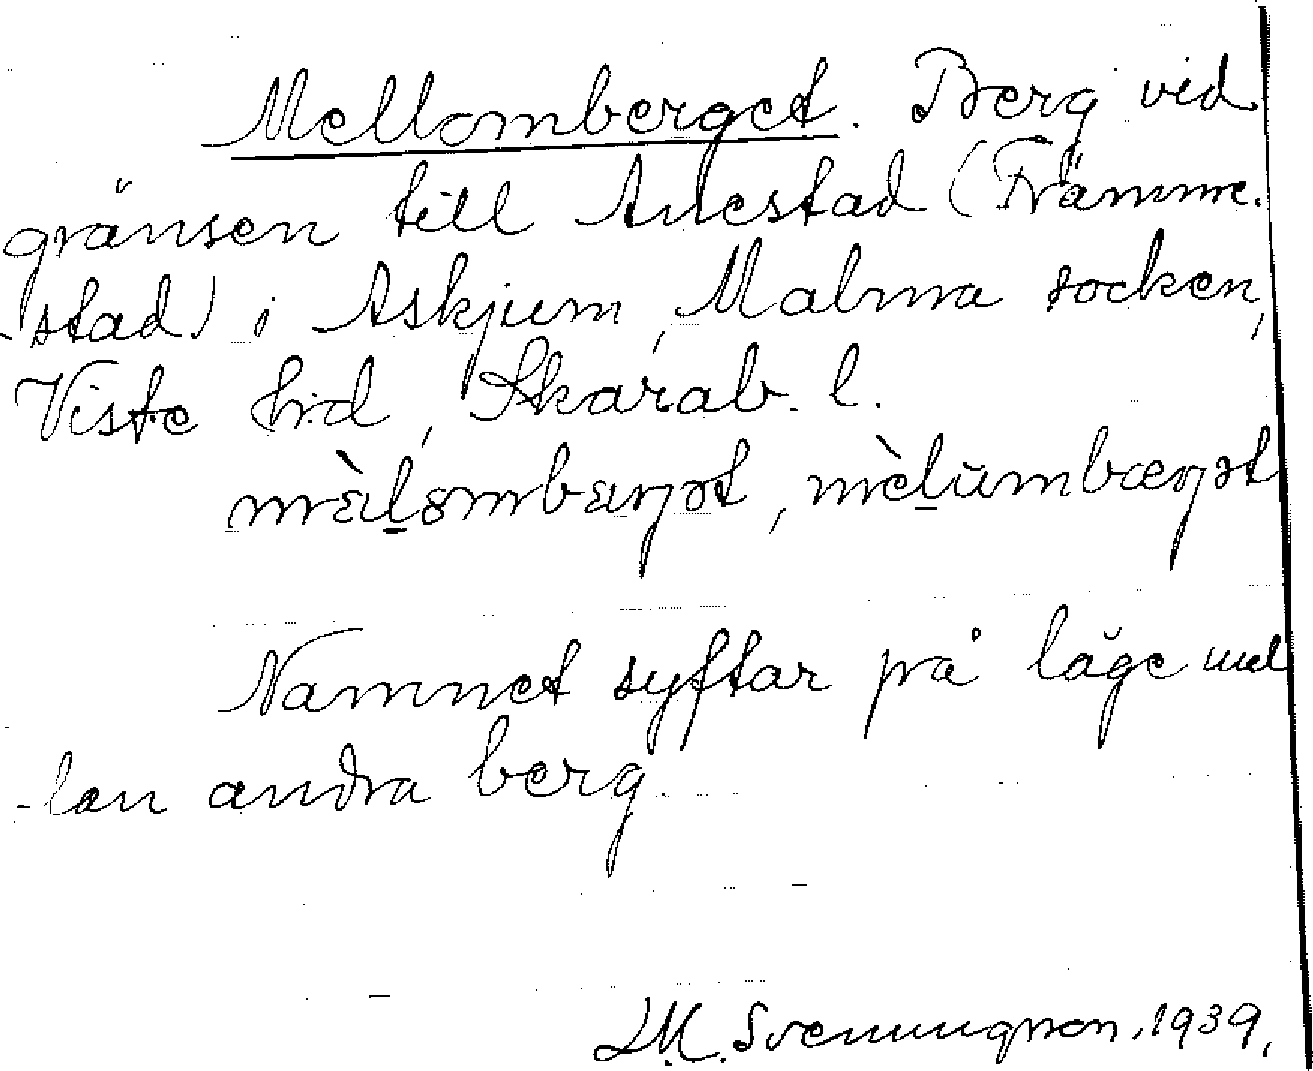 Mellomberget. Berg vid
gränsen till Anestad (Främme-
-stad) i Askjum, Malma socken,
Viste hrd, Skarab. l.
mèlumbærgət
Namnet syftar på läge mel
-lan andra berg.
1939.